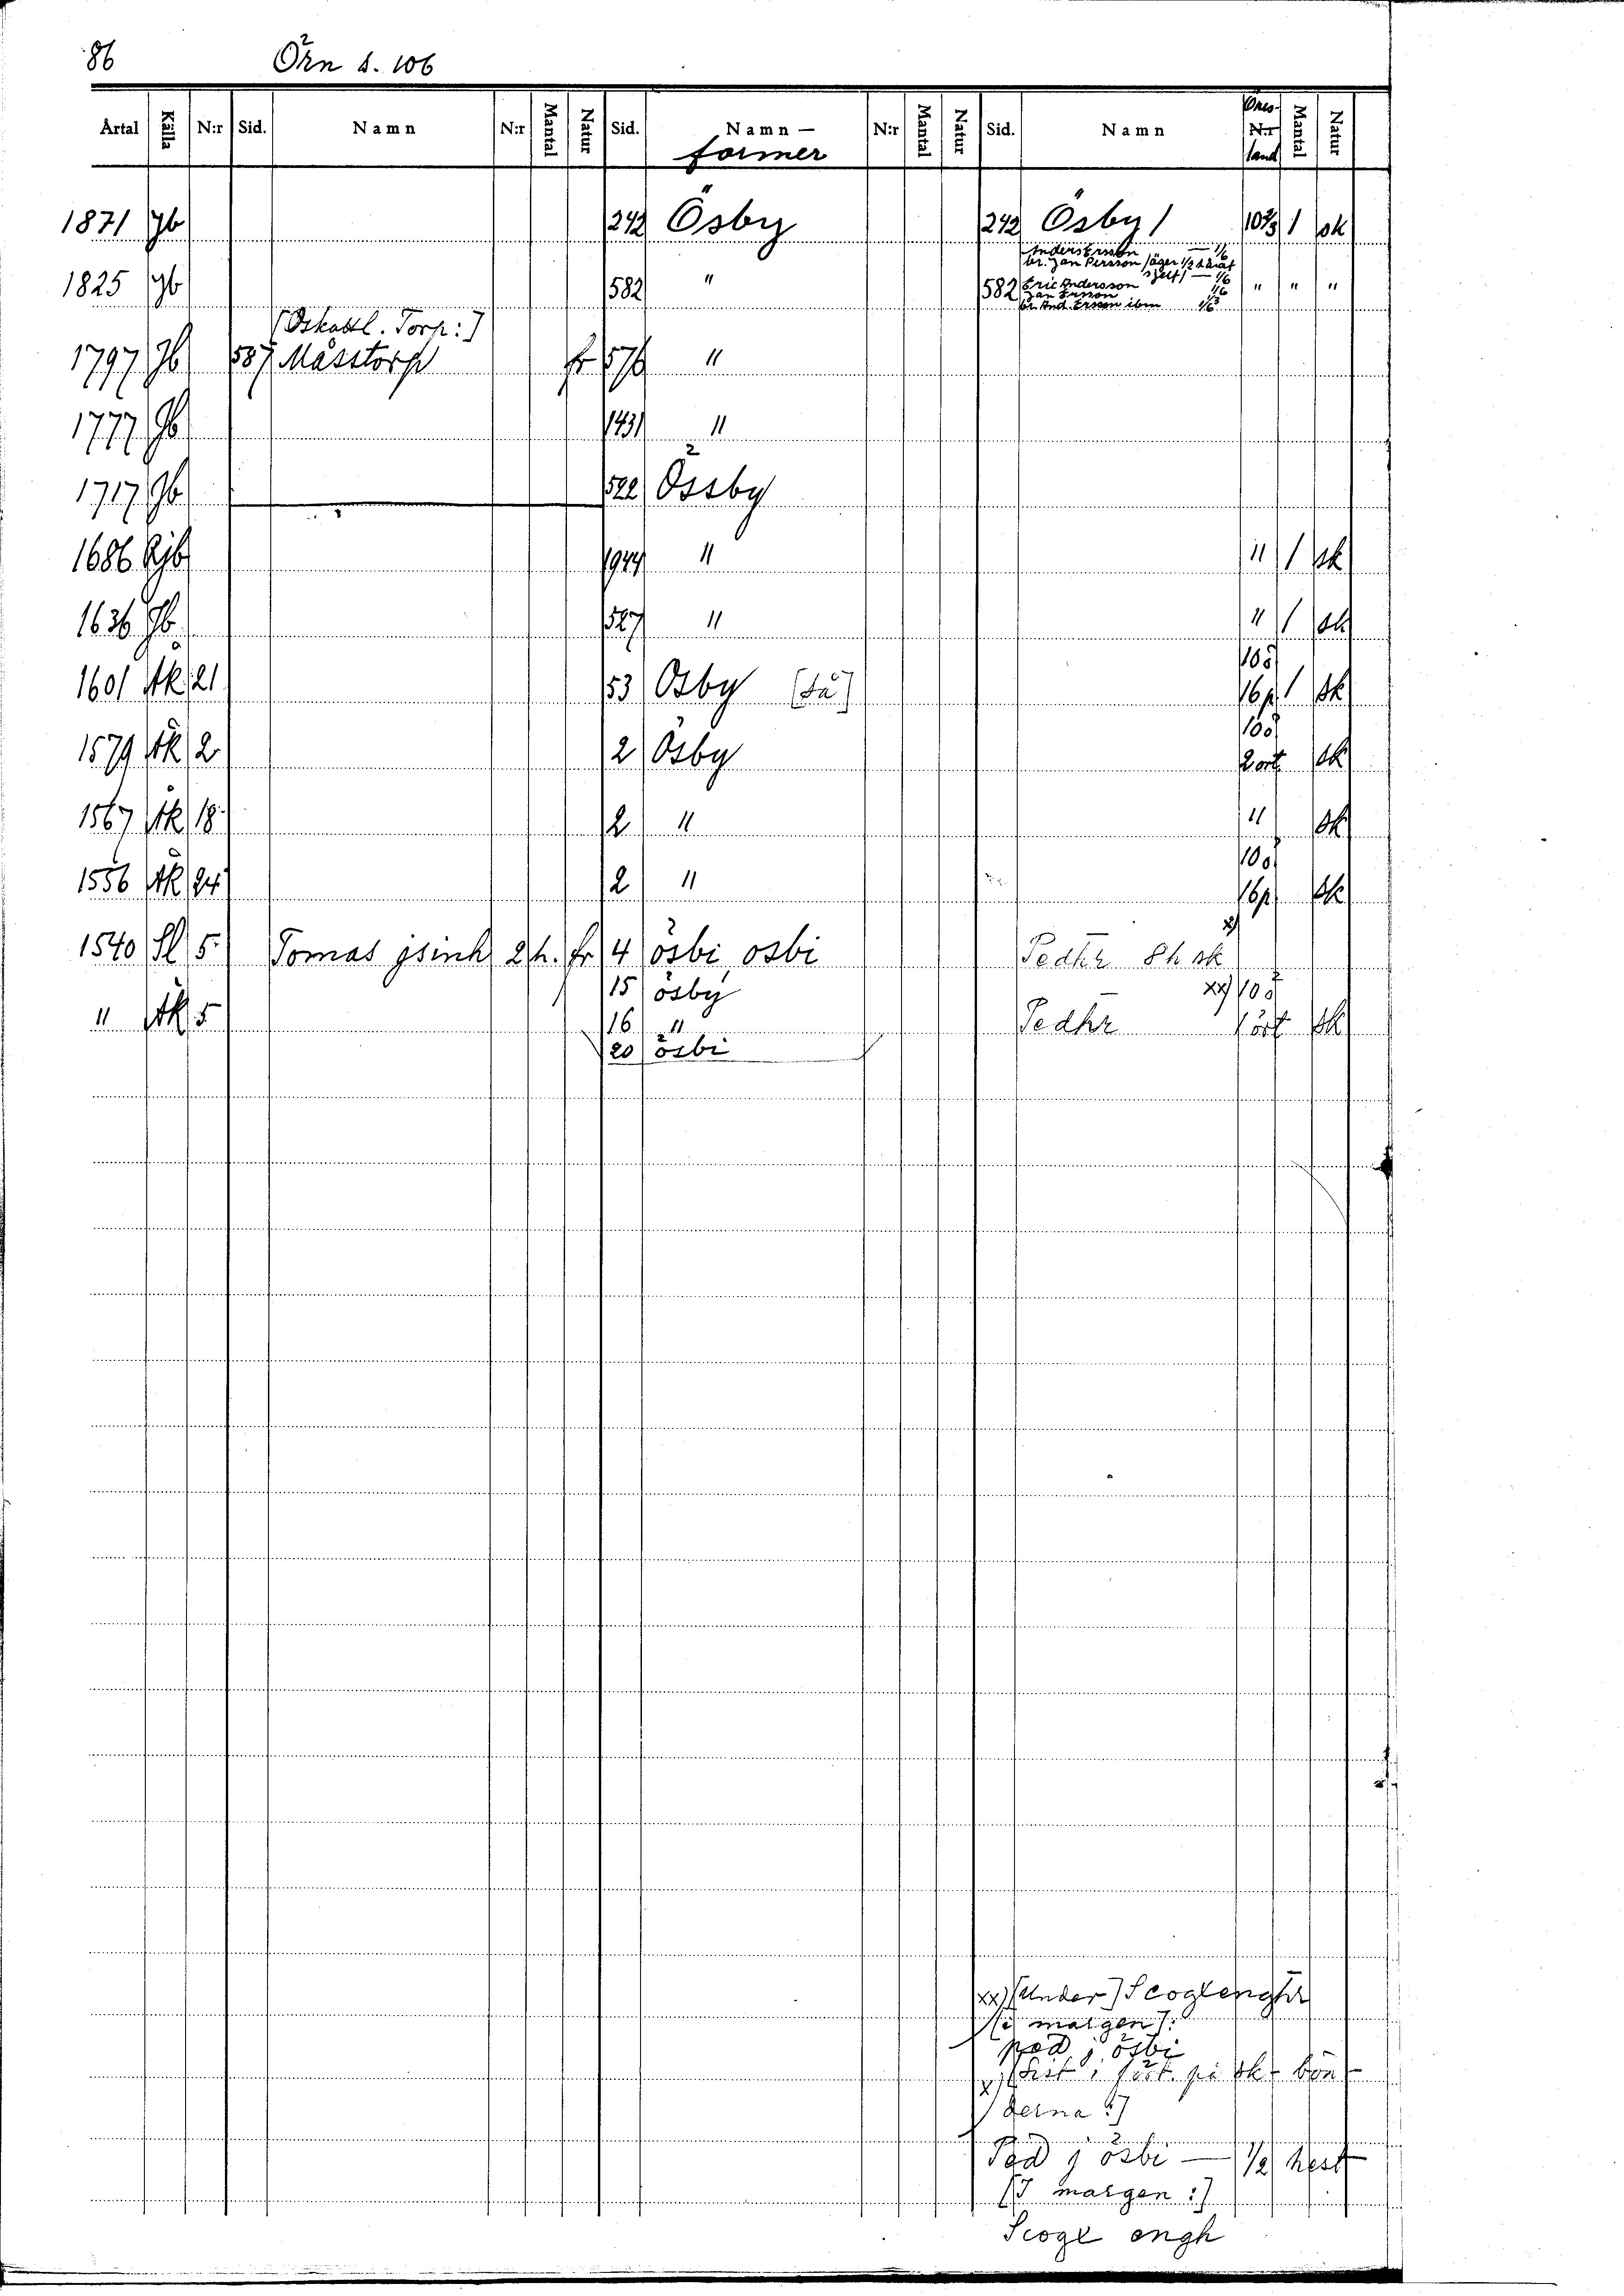 86 Örn s. 106
Årtal Källa N:r Sid. Namn N:r Mantal Natur Sid. Namn- N:r Mantal Natur Sid. Namn Öres- N:r Mantal Natur
former land
1871 Jb 242 Ösby 242 Ösby 1 10⅔ 1 sk
Anders Ersson — 1/6
br. Jan Persson /äger 1/2 häraf
sjelf/ — 1/6
1825 Jb 582 " 582 Eric Andersson 1/6 " " "
Jan Ersson 1/6
br. And. Ersson ibm 1/3
[Oskattl. Torp:]
1797 Jb 587 Måsstorp fr 576 "
1777 Jb 1431 "
1717 Jb 522 Össby
1686 Rjb 1944 " " 1 sk
1636 Jb 527 " " 1 sk
10ö
1601 Åk 21 53 Osby [så] 16p 1 sk
10ö
1579 Åk 2 2 Ösby 2 ört sk
1567 Åk 18 2 " " sk
10ö
1556 Åk 24 2 " 16p sk
x)
1540 Sl 5 Tomas jsink 2 h. fr 4 ösbi, osbi Pedhr 8 h sk
15 ösby xx) 10ö
" Åk 5 16 " Pedhr 1 ört sk
20 ösbi
xx) [Under] Scoglenghr
[i margen]:
ped j ösbi
x) [Sist i fört. på sk-bön-
derna:]
Ped j ösbi — 1/2 hest
[I margen:]
Scogl engh